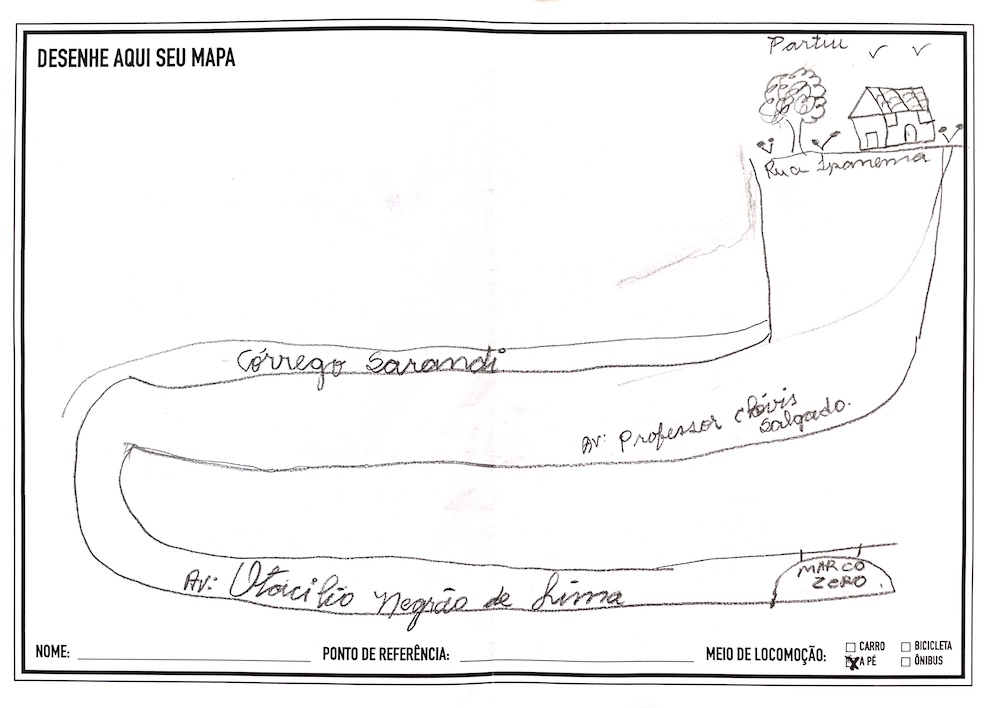 DESENHE AQUI SEU MAPA
Partiu
Rua Ipanema
Córrego Sarandi
AV: Professor Clóvis
Salgado.
AV: Otacilio Negrão de Lima
MARCO
ZERO
NOME:
PONTO DE REFERÊNCIA:
MEIO DE LOCOMOÇÃO:
CARRO
BICICLETA
A PÉ
ÔNIBUS